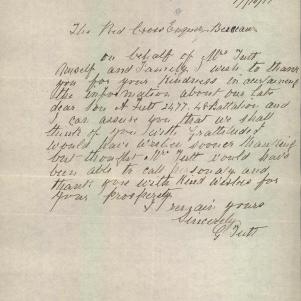 The Red Cross Enquiry Bureau
on behalf of Mrs Tutt
Myself and Family I wish to thank
you for your kindness in
the information about our late
dear son A Tutt 2477. 48 Battalion and
I can assure you that we shall
think of you with Grattitude I
would have written sooner thanking
but thought Mrs Tutt would have
been able to call personaly and
thank you with Kind wishes for
your Prosperity
I remain yours
Sincerely
G Tutt